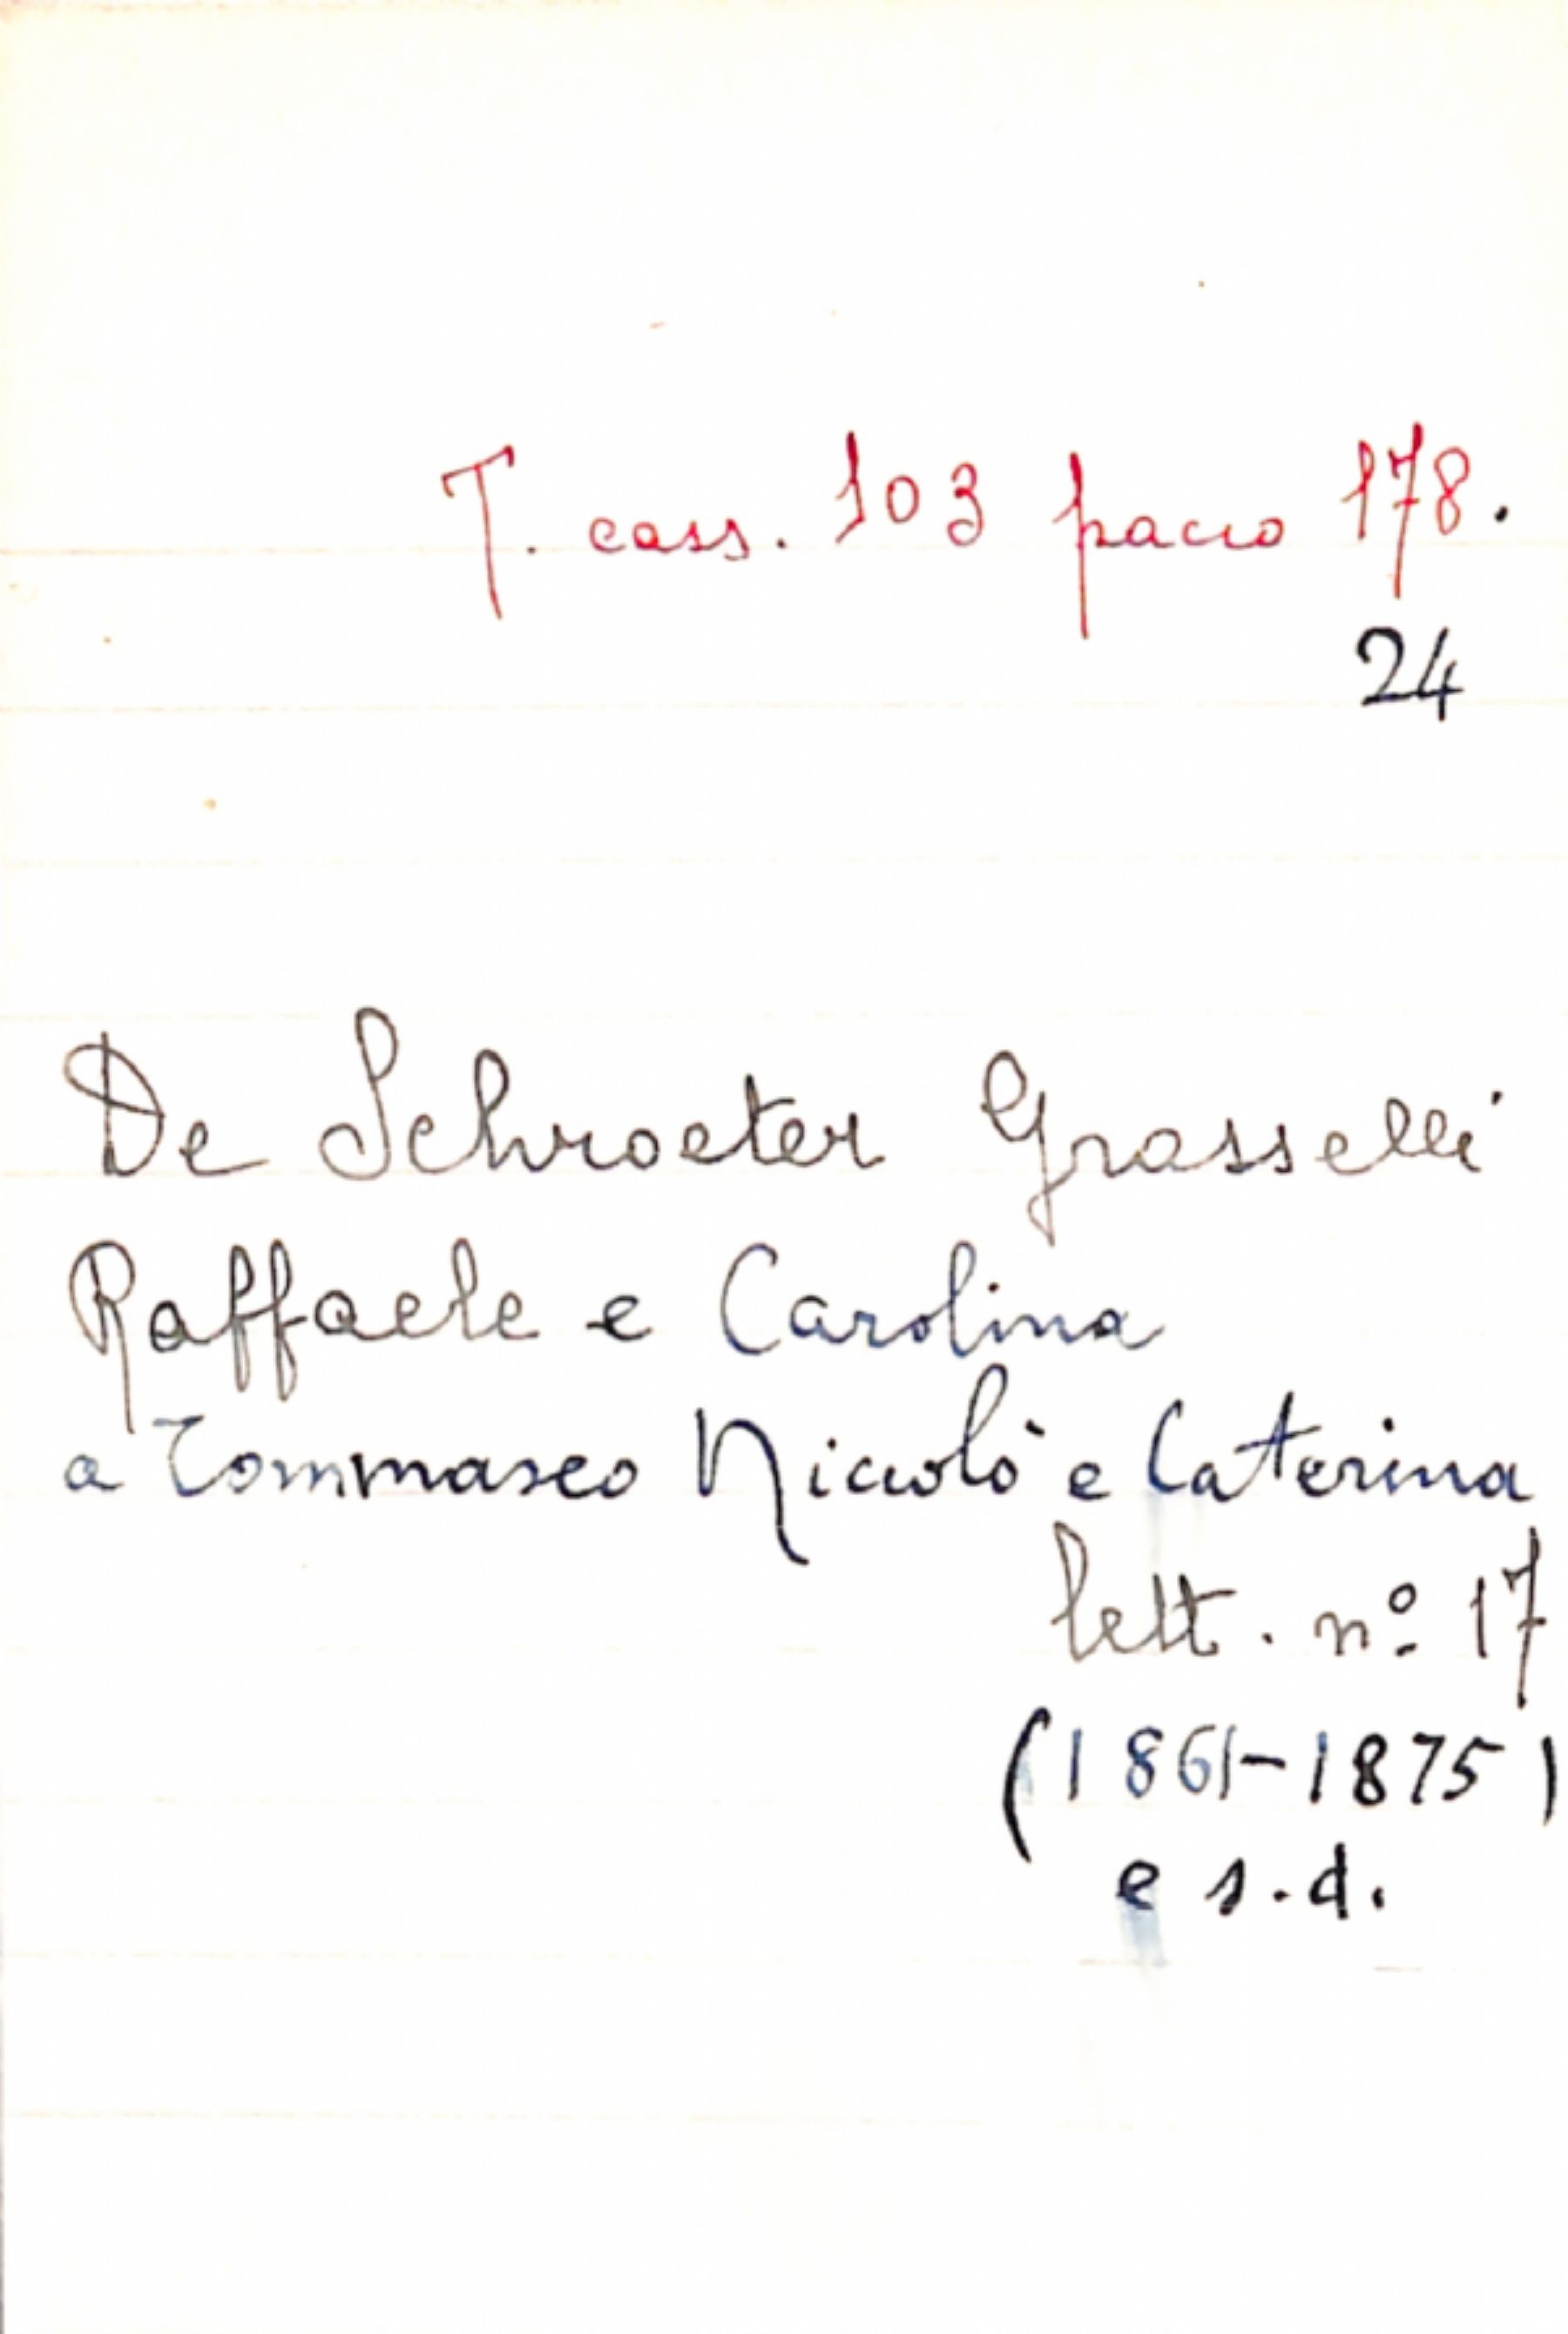 T. cass. 103 pacco 178.
24
De Schroeter Grasselli
Raffaele e Carolina
a Tommaseo Niccolò e Caterina
lett. nº 17
(1861-1875)
e s.d.